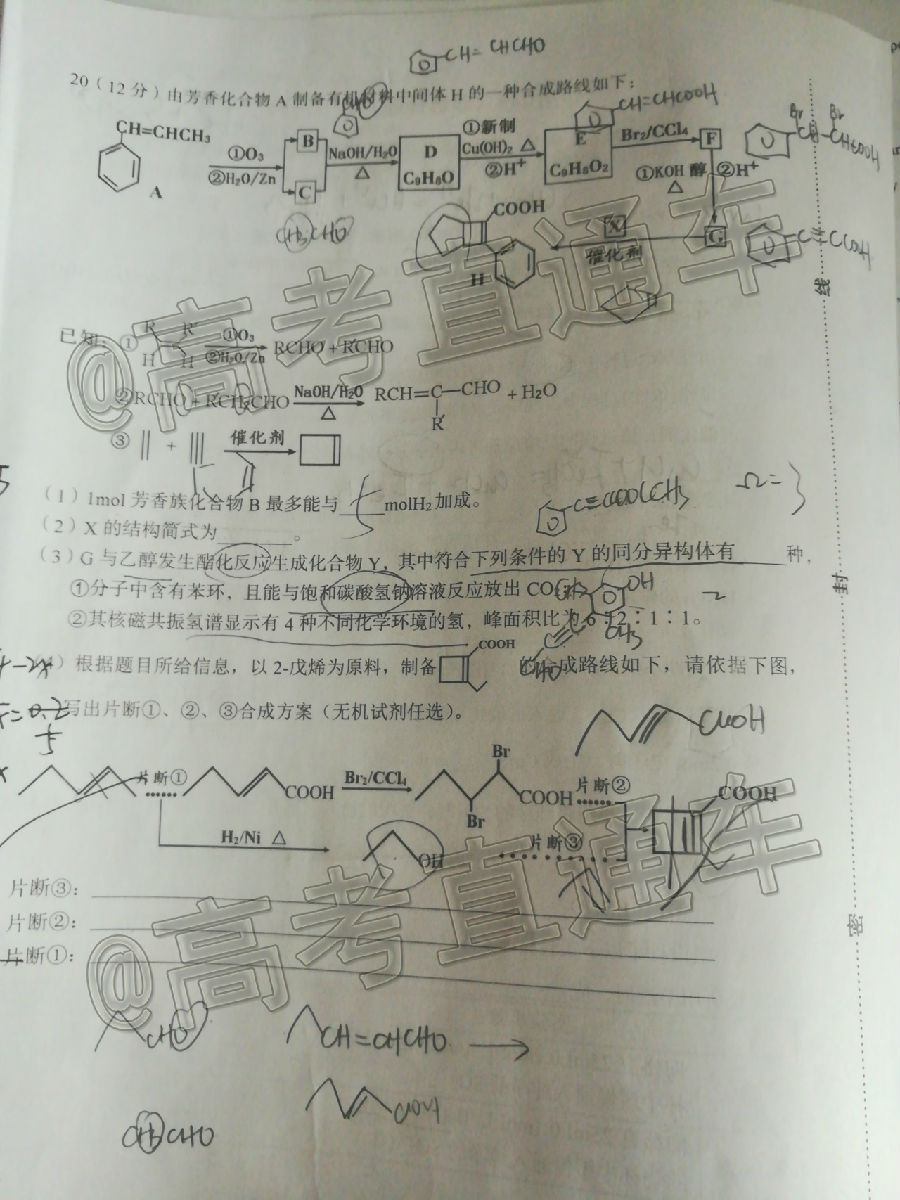 CH=CHCHO
20(12分)由芳香化合物A制备有机材料中间体H的一种合成路线如下:
CH=CHCH₃
A
①O₃
②H₂O/Zn
B
C
NaOH/H₂O
△
D
C₉H₈O
①新制
Cu(OH)₂ △
②H⁺
E
C₉H₈O₂
Br₂/CCl₄
F
CH=CHCOOH
Br Br
CH-CHCOOH
①KOH 醇
△
②H⁺
G
C≡CCOOH
X
催化剂
COOH
H
CH₃CHO
已知:①
R R'
H H
①O₃
②H₂O/Zn
RCHO+R'CHO
②RCHO+R'CH₂CHO
NaOH/H₂O
△
RCH=C—CHO
R'
+H₂O
③
+
催化剂
(1)1mol芳香族化合物B最多能与
5
molH₂加成。
(2)X的结构简式为______。
(3)G与乙醇发生酯化反应生成化合物Y,其中符合下列条件的Y的同分异构体有____种,
①分子中含有苯环,且能与饱和碳酸氢钠溶液反应放出CO
②其核磁共振氢谱显示有4种不同化学环境的氢,峰面积比为6∶2∶1∶1。
OH
CH₃
COOH
)根据题目所给信息,以2-戊烯为原料,制备
的合成路线如下,请依据下图,
写出片断①、②、③合成方案(无机试剂任选)。
COOH
片断①
COOH
Br₂/CCl₄
Br
Br
COOH
片断②
COOH
H₂/Ni △
OH
片断③
片断③:
片断②:
片断①:
CHO
CH=CHCHO
COOH
CH₃CHO
线
封
密
@高考直通车
@高考直通车